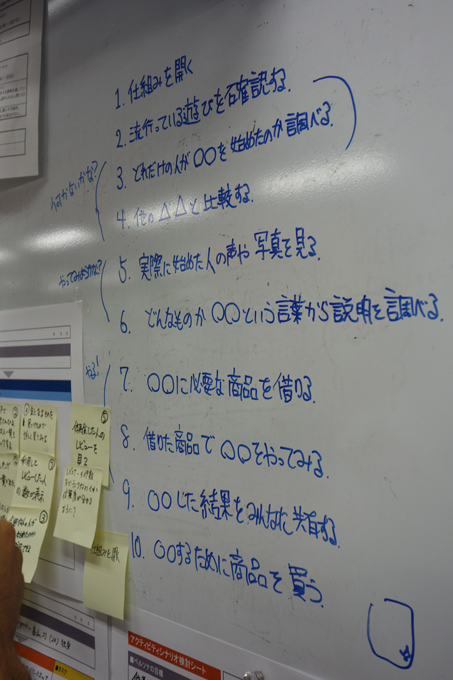 1. 仕組みを開く
2. 流行っている遊びを確認する.
3. どれだけの人が〇〇を始めたのか調べる.
4. 他の△△と比較する.
5. 実際に始めた人の声や写真を見る.
6. どんなものか〇〇という言葉から説明を調べる.
7. 〇〇に必要な商品を借りる.
8. 借りた商品で〇〇をやってみる.
9. 〇〇した結果をみんなに共有する.
10. 〇〇するために商品を買う.
何かないかな?
やってみようかな?
やる!
仕組みを開く
アクティビティシナリオ検討シート
■ペルソナの目標